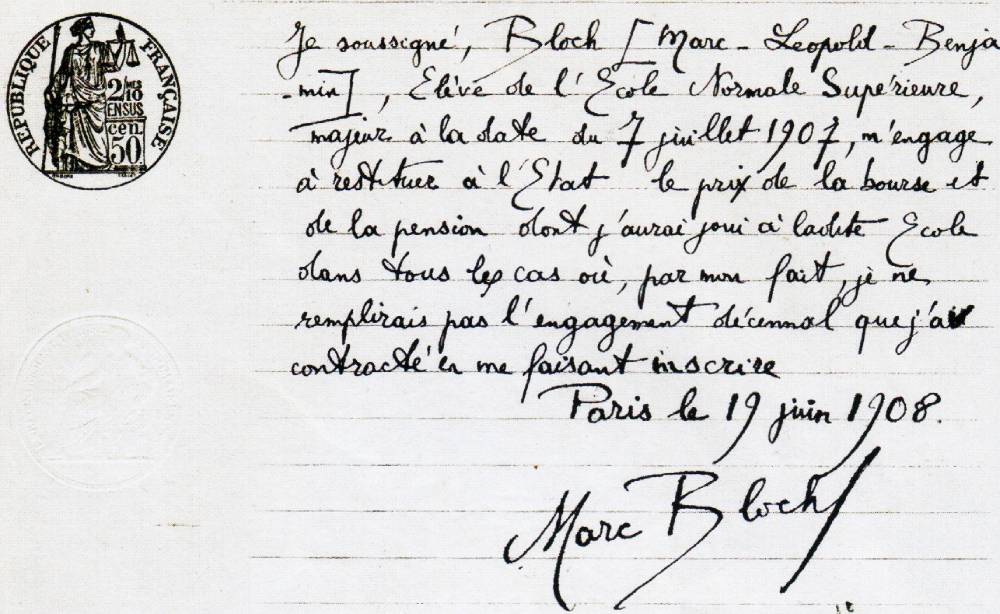 RÉPUBLIQUE FRANÇAISE
2/10 MES
EN SUS
50 cen.
Je soussigné, Bloch [Marc - Léopold - Benja
-min], Elève de l'Ecole Normale Supérieure,
majeur à la date du 7 juillet 1907, m'engage
à restituer à l'Etat le prix de la bourse et
de la pension dont j'aurai joui à ladite Ecole
dans tous les cas où, par mon fait, je ne
remplirais pas l'engagement décennal que j'ai
contracté en me faisant inscrire
Paris le 19 juin 1908.
Marc Bloch